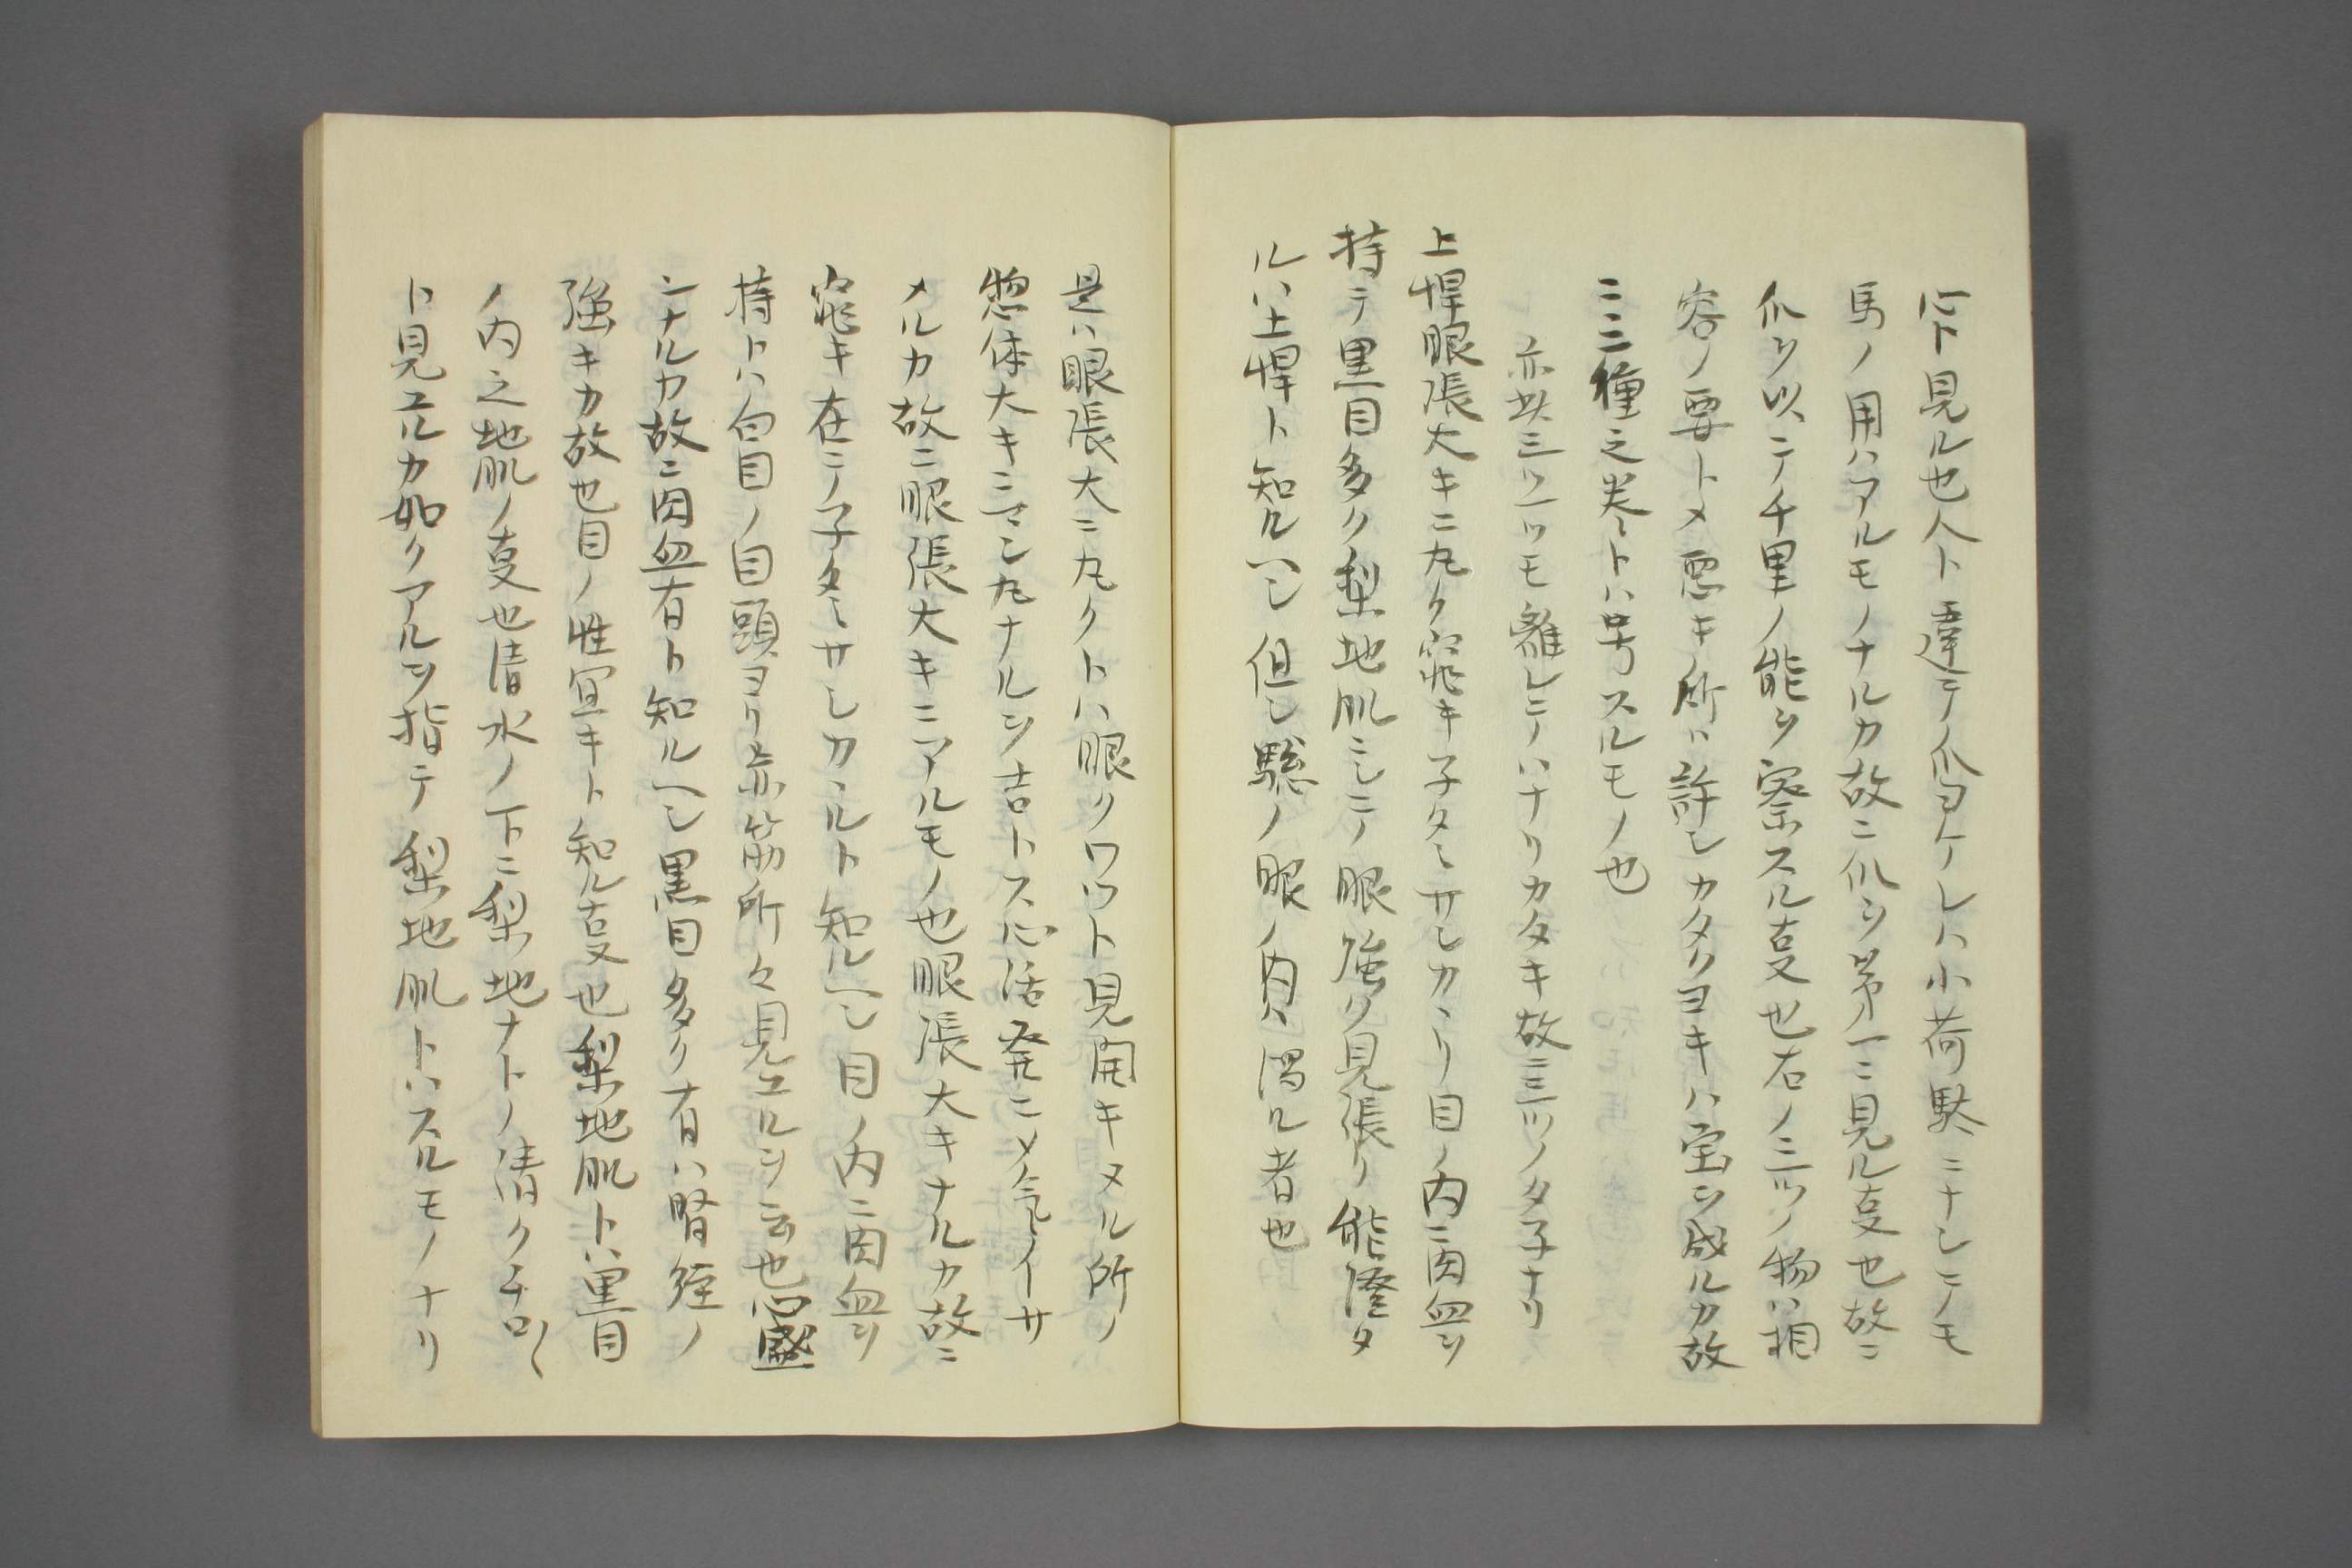 下ト見ル也人ト違テノ爪ヨケレハ小荷駄ニナシテノモ
馬ノ用ハアルモノナルカ故ニ爪ヲ第一ニ見ル叓也故ニ
爪ヲ以テ千里ノ能ヲ察スル叓也右ノ三ツノ物ハ相
容ノ要トメ悪キ所ハ許シカタクヨキハ宝ヲ成ルカ故
ニ三種之米トハ号スルモノ也
亦此三ツ一ツモ離レテハナリカタキ故三ツノタ子ナリ
上悍眼張大キニ丸ク窕キ子タミサシカヽリ目ノ内ニ肉血ヲ
持テ黒目多ク梨地肌ニシテノ眼強ク見張リ能澄タ
ルハ上悍ト知ルヘシ但シ驄ノ眼ノ内ハ濁ル者也
是ハ眼張大ニ丸クトハ眼クワツト見開キタル所ノ
惣体大キニマン丸ナルヲ吉トス心活発ニメ気イサ
メルカ故ニ眼張大キニアルモノ也眼張大キナルカ故ニ
窕キ在ニノ子タミサシカヽルト知ルヘシ目ノ内ニ肉血ヲ
持トハ白目ノ目頭ヨリ赤筋所々見エルヲ云也心盛
ンナルカ故ニ肉血有ト知ルヘシ黒目多ク有ハ腎経ノ
強キカ故也目ノ性宜キト知ル叓也梨地肌トハ黒目
ノ内之地肌ノ叓也清水ノ下ニ梨地ナトノ清クチロ〳〵
ト見エルカ如クアルヲ指テ梨地肌トハスルモノナリ